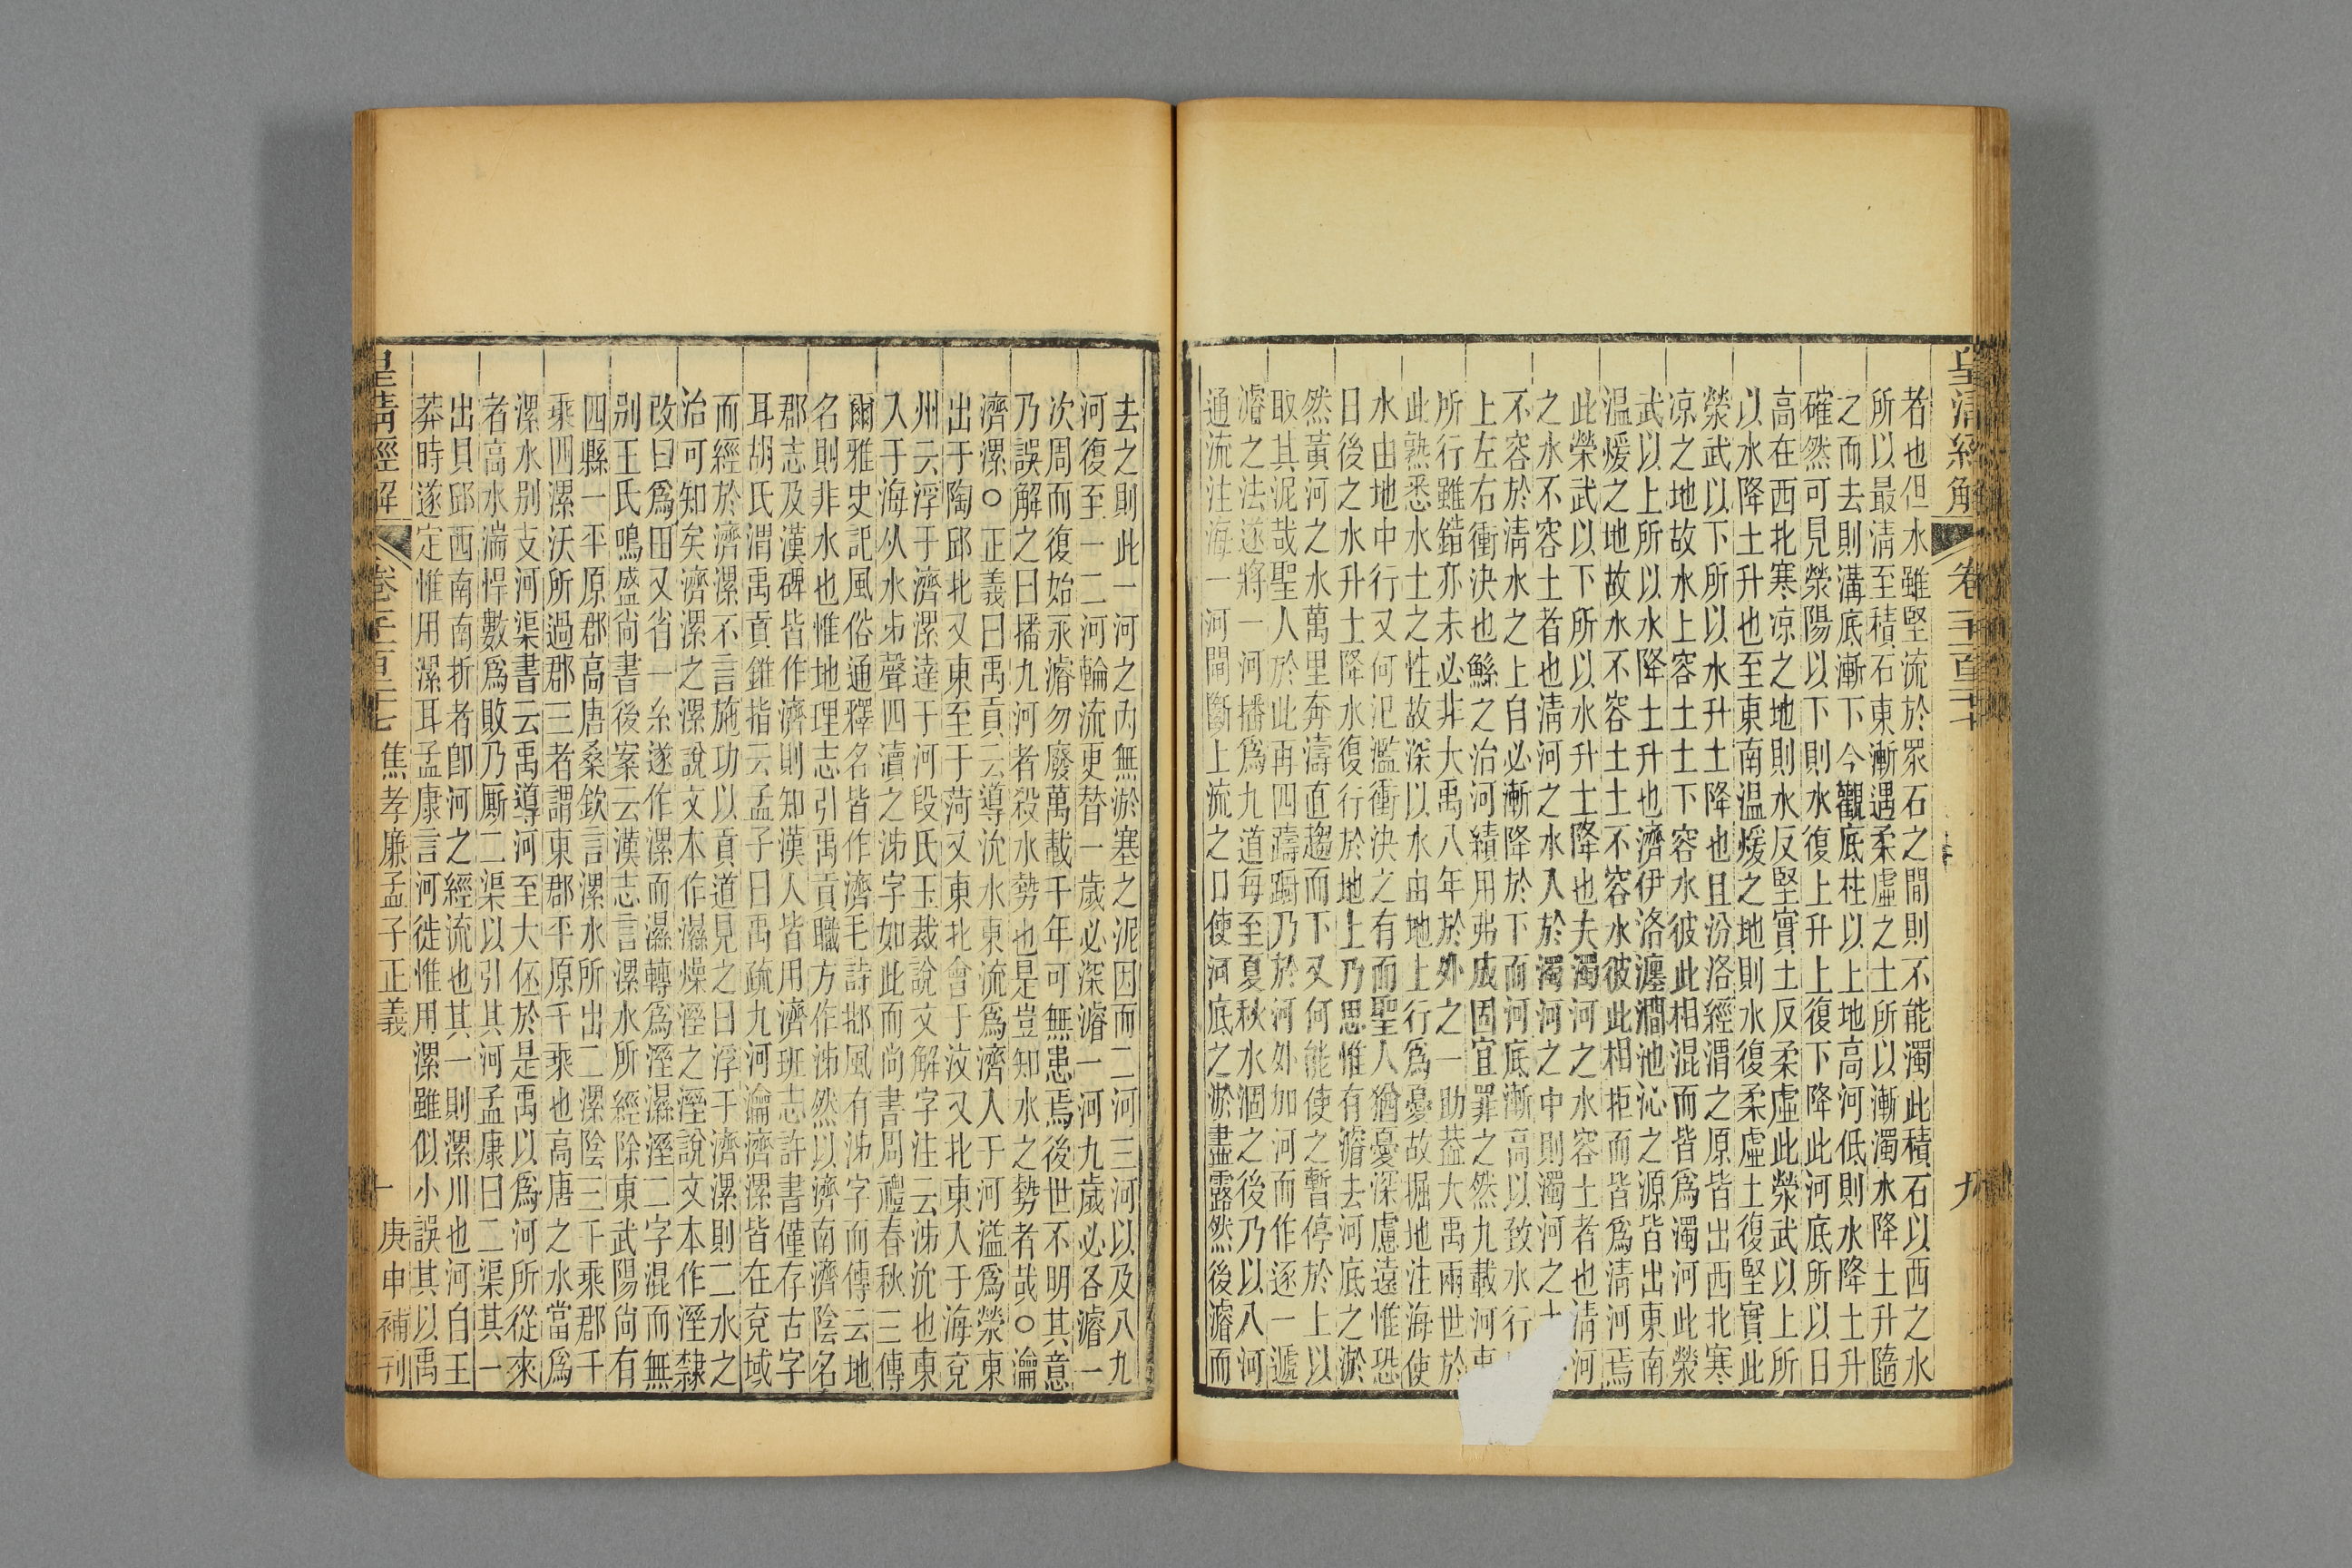 皇清經解
卷一千一百二十
九
者也但水雖堅流於眾石之間則不能濁此積石以西之水
所以最清至積石東漸遇柔虛之土所以漸濁水降土升隨
之而去則溝底漸下今觀底柱以上地高河低則水降土升
確然可見滎陽以下則水復上升上復下降此河底所以日
高在西北寒凉之地則水反堅實土反柔虛此滎武以上所
以水降土升也至東南温煖之地則水復柔虛土復堅實此
滎武以下所以水升土降也且汾洛經渭之原皆出西北寒
凉之地故水上容土土下容水彼此相混而皆爲濁河此滎
武以上所以水降土升也濟伊洛瀍澗池沁之源皆出東南
温煖之地故水不容土土不容水彼此相拒而皆爲清河焉
此榮武以下所以水升土降也夫濁河之水容土者也清河
之水不容土者也清河之水入於濁河之中則濁河之土
不容於清水之上自必漸降於下而河底漸高以致水行
上左右衝決也鯀之治河績用弗成固宜罪之然九載河
所行雖錯亦未必非大禹八年於外之一助葢大禹兩世於
此熟悉水土之性故深以水由地上行爲憂故掘地注海使
水由地中行又何氾濫衝決之有而聖人猶憂深慮遠惟恐
日後之水升土降水復行於地上乃思惟有濬去河底之淤
然黃河之水萬里奔濤直趨而下又何能使之暫停於上以
取其泥哉聖人於此再四躊躕乃於河外加河而作逐一遞
濬之法遂將一河播爲九道每至夏秋水涸之後乃以八河
通流注海一河間斷上流之口使河底之淤盡露然後濬而
去之則此一河之內無淤塞之泥因而二河三河以及八九
河復至一二河輪流更替一歲必深濬一河九歲必各濬一
次周而復始永濬勿廢萬載千年可無患焉後世不明其意
乃誤解之曰播九河者殺水勢也是豈知水之勢者哉○瀹
濟漯○正義曰禹貢云導沇水東流爲濟入于河溢爲滎東
出于陶邱北又東至于菏又東北會于汶又北東入于海兗
州云浮于濟漯達于河段氏玉裁說文解字注云泲沇也東
入于海从水𠂔聲四瀆之泲字如此而尚書周禮春秋三傳
爾雅史記風俗通釋名皆作濟毛詩邶風有泲字而傳云地
名則非水也惟地理志引禹貢職方作泲然以濟南濟陰名
郡志及漢碑皆作濟則知漢人皆用濟班志許書僅存古字
耳胡氏渭禹貢錐指云孟子曰禹疏九河瀹濟漯皆在兗域
而經於濟漯不言施功以貢道見之曰浮于濟漯則二水之
治可知矣濟漯之漯說文本作濕燥溼之溼說文本作溼隸
改曰爲田又省一糸遂作漯而濕轉爲溼濕溼二字混而無
别王氏鳴盛尚書後案云漢志言漯水所經除東武陽尚有
四縣一平原郡高唐桑欽言漯水所出二漯陰三千乘郡千
乘四漯沃所過郡三者謂東郡平原千乘也高唐之水當爲
漯水别支河渠書云禹導河至大伾於是禹以爲河所從來
者高水湍悍數爲敗乃厮二渠以引其河孟康曰二渠其一
出貝邱西南南折者卽河之經流也其一則漯川也河自王
莽時遂定惟用漯耳孟康言河徙惟用漯雖似小誤其以禹
皇清經解
焦孝廉孟子正義
庚申補刊